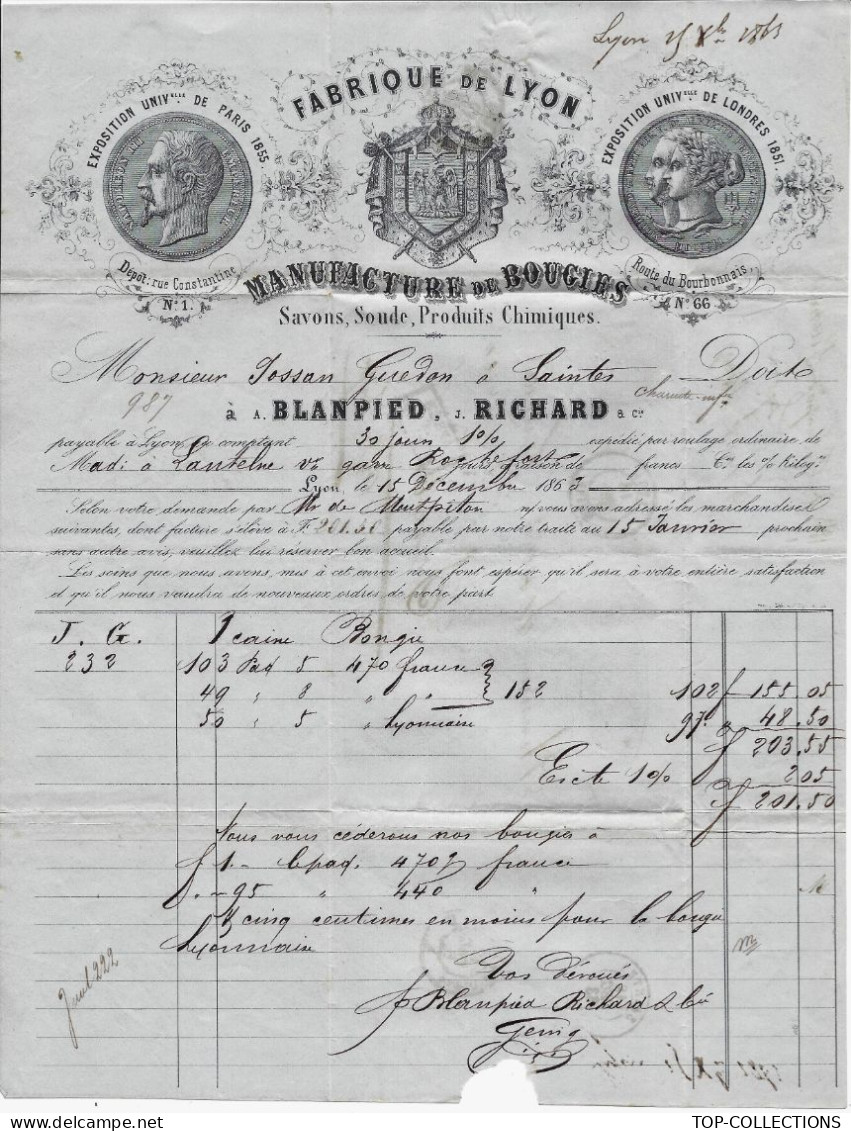 Lyon 15 Xbre 1863
FABRIQUE DE LYON
EXPOSITION UNIVELLE DE PARIS 1855
EXPOSITION UNIVELLE DE LONDRES 1851.
Dépot: rue Constantine
N° 1.
MANUFACTURE DE BOUGIES
Route du Bourbonnais
N° 66
Savons, Soude, Produits Chimiques.
Monsieur Jossan Guedon à Saintes Doit
987
à A. BLANPIED, J. RICHARD & Cie
payable à Lyon, au comptant 30 jours 1% expédié par roulage ordinaire de
jours, à raison de francs Cmes les % Kilogs
Rochefort
Lyon, le 15 Décembre 1863
Selon votre demande par Mr de n/ vous avons adressé les marchandises
suivantes, dont facture s'élève à F. 201.50 payable par notre traite au 15 Janvier prochain
sans autre avis, veuillez lui réserver bon accueil.
Les soins que nous avons, mis à cet envoi nous font espérer qu'il sera à votre entière satisfaction
et qu'il nous vaudra de nouveaux ordres de votre part.
J. G. 1 caisse Bougie
232 103 Paq 5 470 france
49 " 8 " " 152 102 f 155.05
50 " 5 " Lyonnaise 97 " 48.50
f 203.55
Escte 1% 2 05
f 201.50
Nous vous céderons nos bougies à
f 1.- le paq. 470g france
f .-95 " 440 "
& cinq centimes en moins pour la bougie
Lyonnaise
Vos dévoués
p Blanpied Richard & Cie
222
TOP-COLLECTIONS